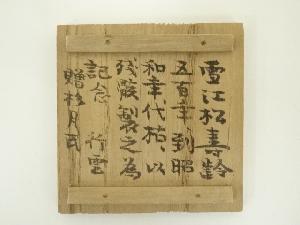 雪江松寿齢
五百年到昭
和年代枯、以
残骸製之為
記念 行雲
贈杉月氏